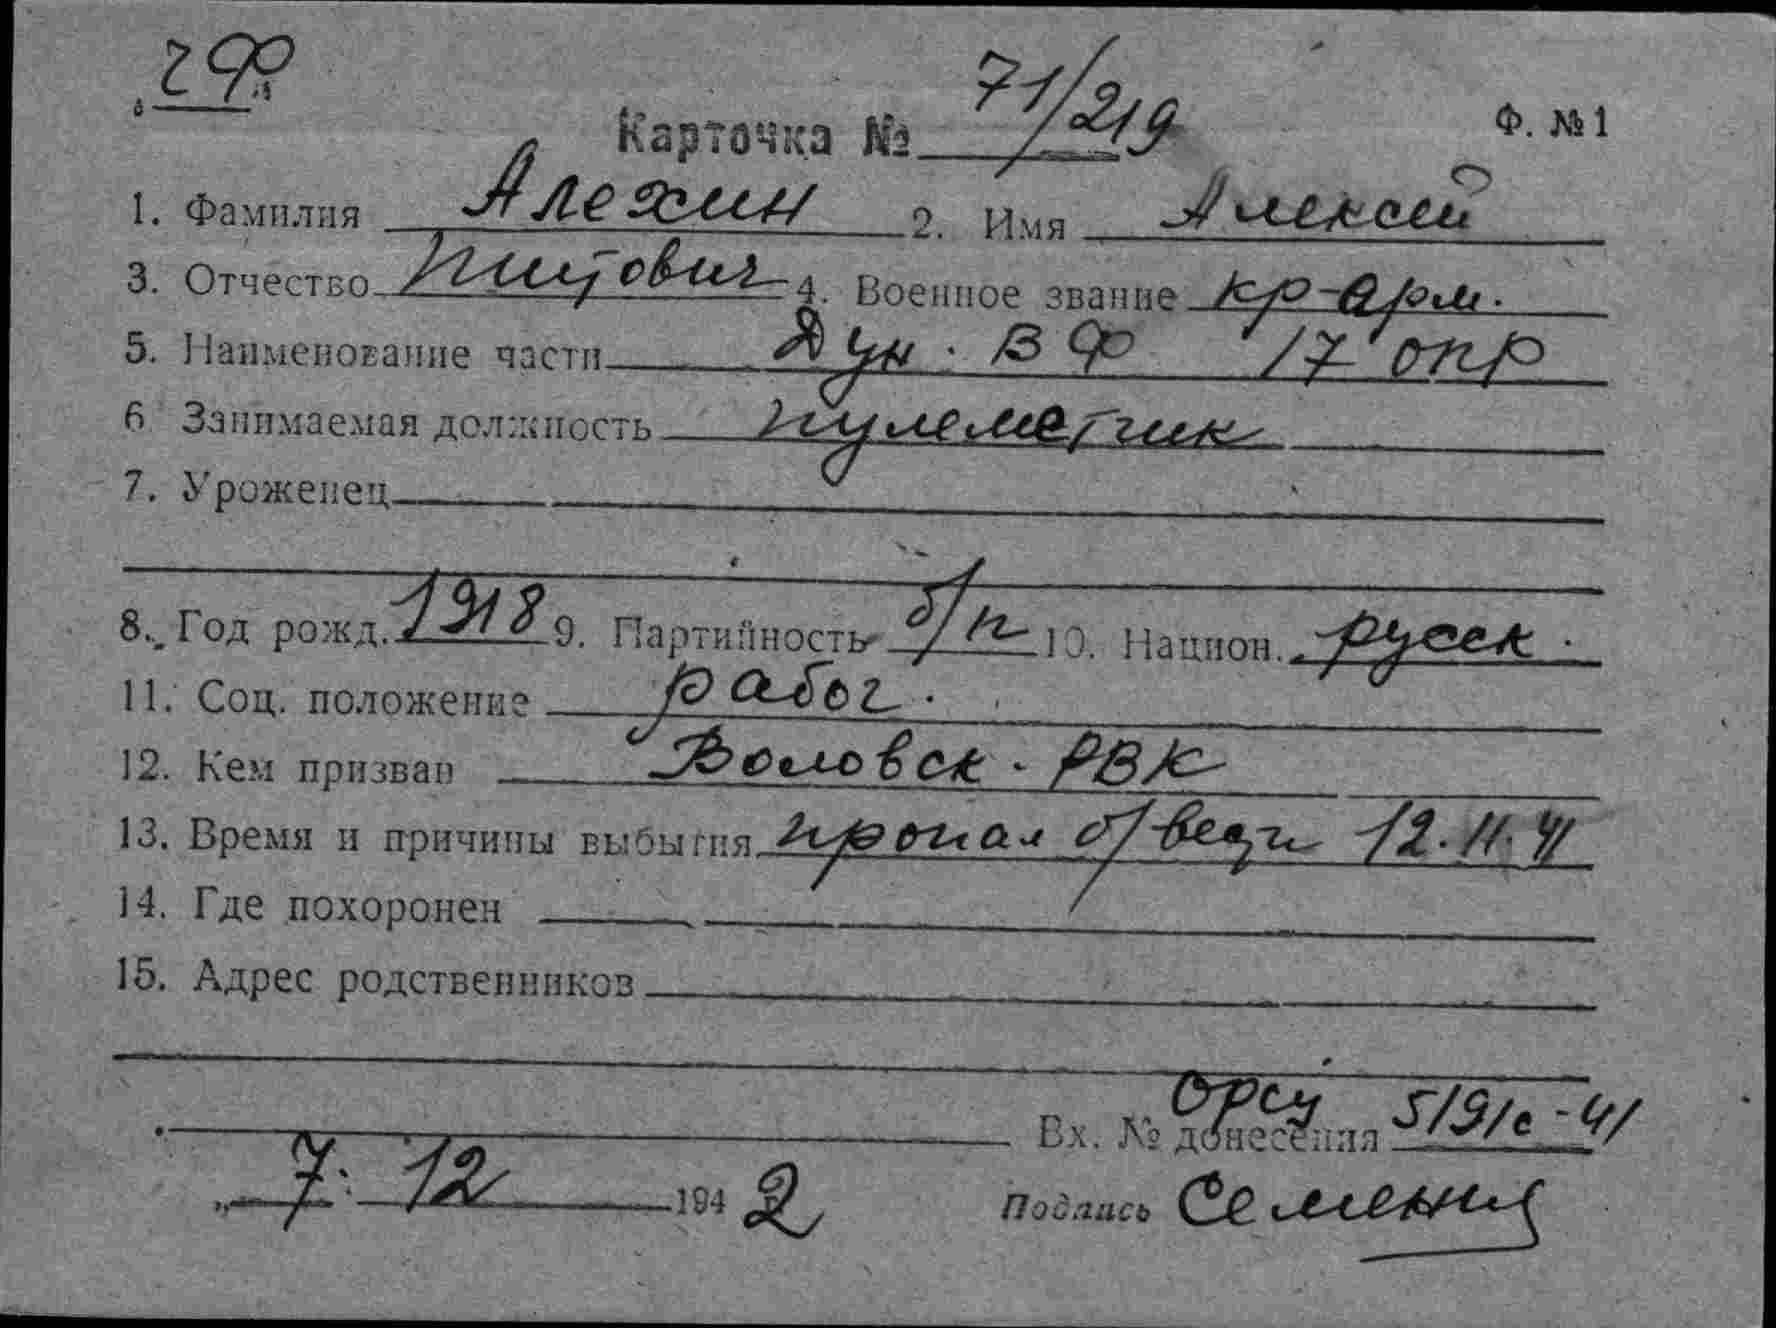 290
Карточка № 71/219 Ф. № 1
1. Фамилия Алехин 2. Имя Алексей
3. Отчество Титович 4. Военное звание кр-арм.
5. Наименование части Дун. ВФ 17 опр
6 Занимаемая должность пулеметчик
7. Уроженец
8. Год рожд. 1918 9. Партийность б/п 10. Национ. русск.
11. Соц. положение рабоч.
12. Кем призван Воловск. РВК
13. Время и причины выбытия пропал б/вести 12.11.41
14. Где похоронен
15. Адрес родственников
ОРСУ
Вх. № донесения 519/с-41
„ 7. 12 1942 Подпись